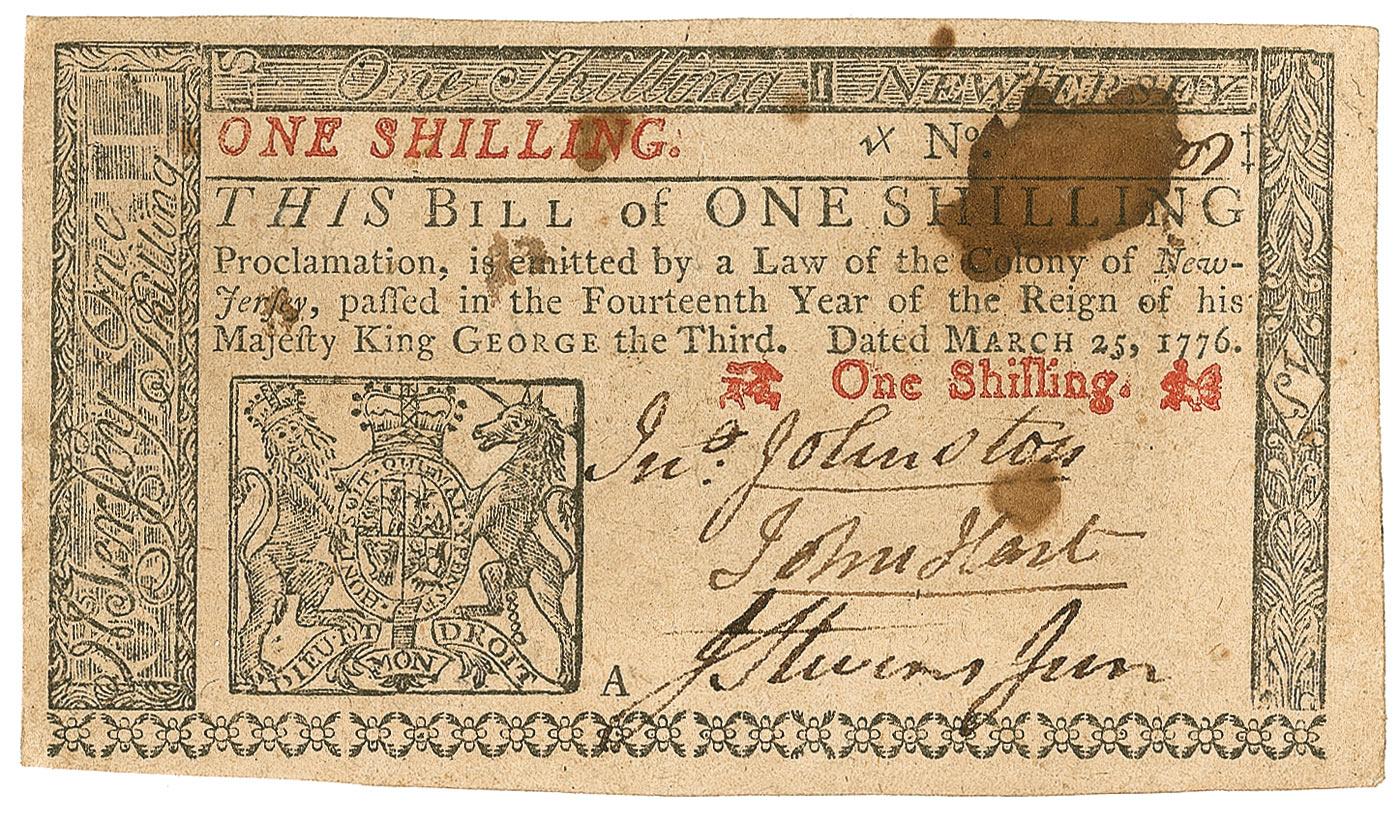 1S One Shilling NEW JERSEY
ONE SHILLING. No.
THIS BILL of ONE SHILLING
Proclamation, is emitted by a Law of the Colony of New-
Jerſey, paſſed in the Fourteenth Year of the Reign of his
Majeſty King GEORGE the Third. Dated MARCH 25, 1776.
One Shilling.
Jno. Johnston
John Hart
J Stevens Jun
A
N Jersey One
Shilling
HONI SOIT QUI MAL Y PENSE
DIEU ET MON DROIT
1S